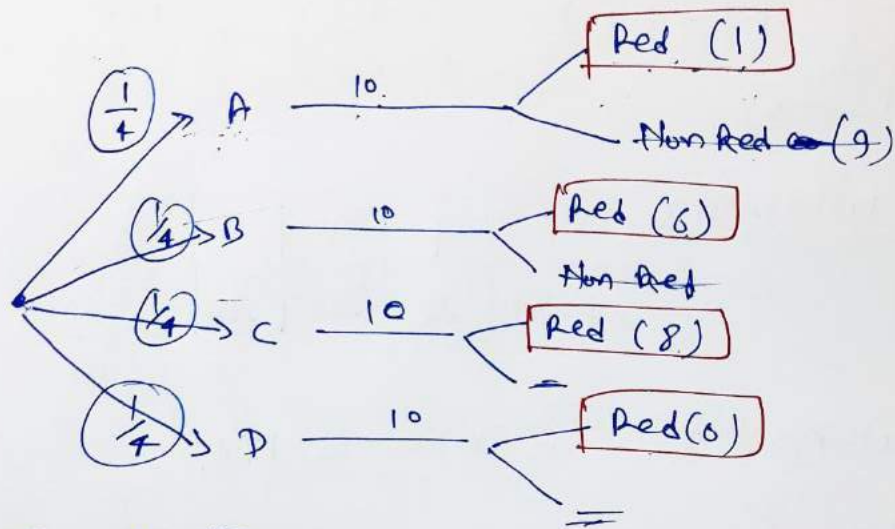 Red (1)
1/4 A 10. Non Red (9)
1/4 B 10 Red (6)
Non Red
1/4 C 10 Red (8)
1/4 D 10 Red (0)